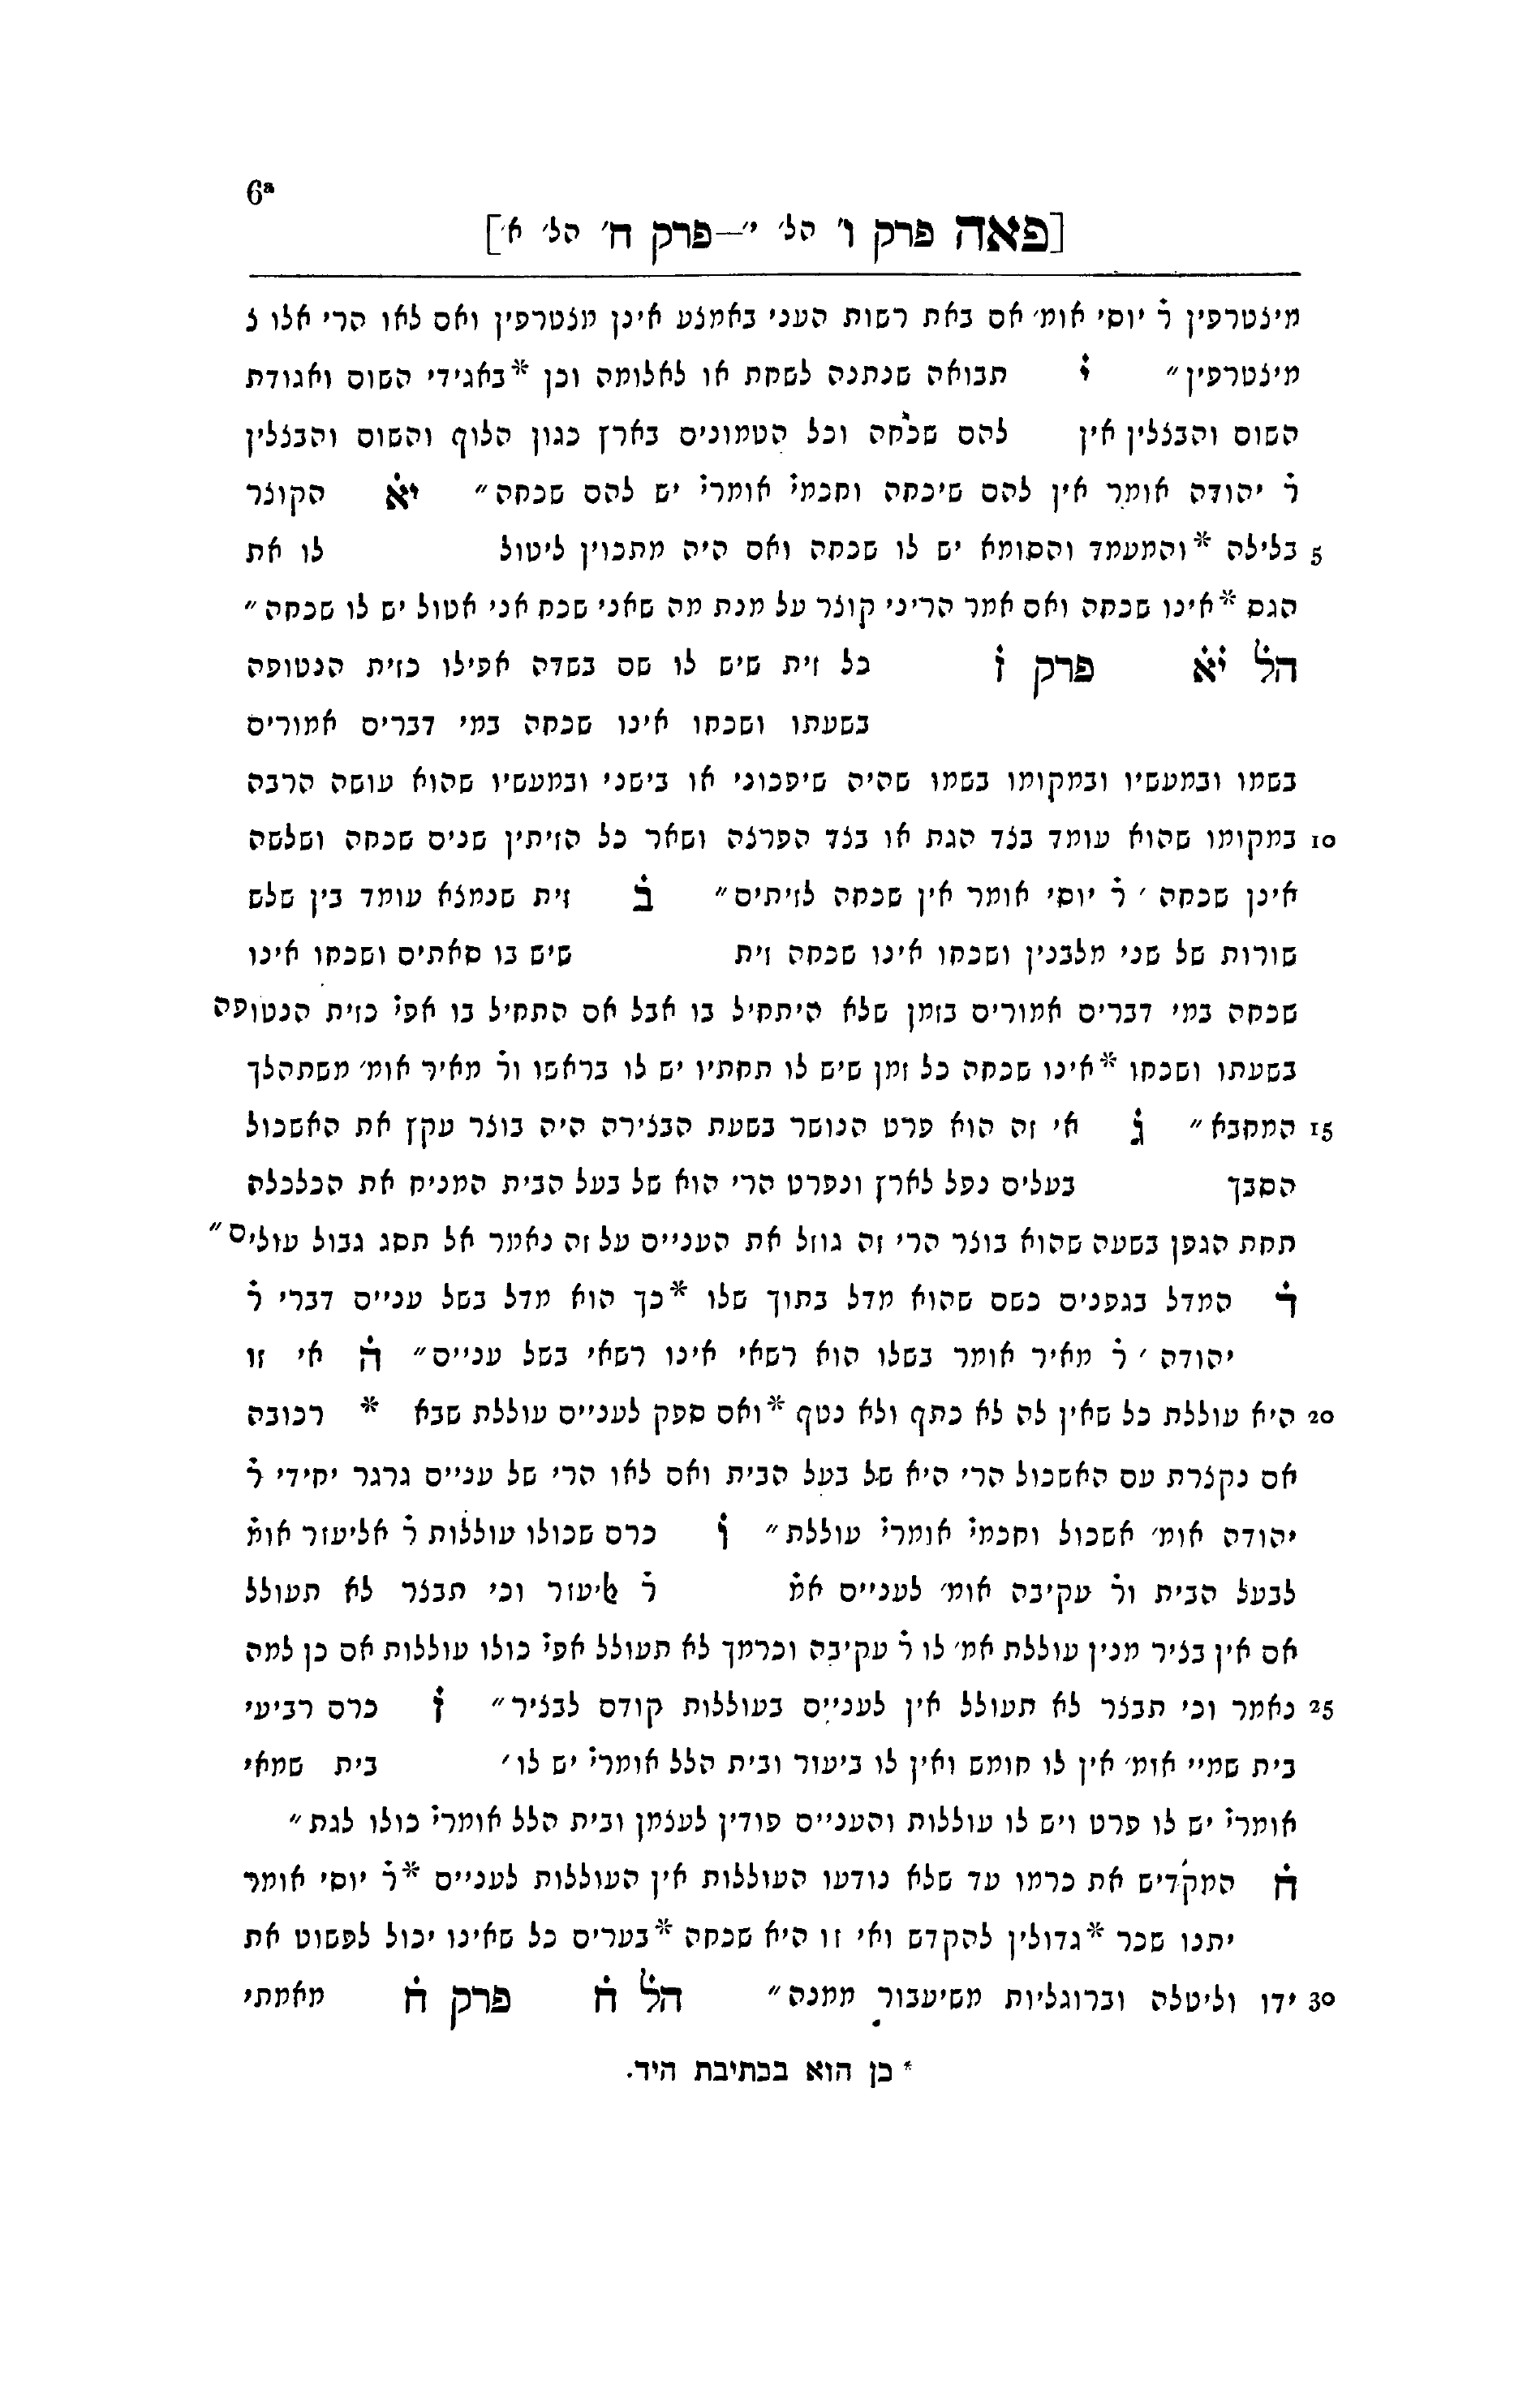 6ª
[פאה פרק ו' הל' י'—פרק ח' הל' א']
מיצטרפין ר׳ יוסי אומ׳ אם באת רשות העני באמצע אינן מצטרפין ואם לאו הרי אלו צ
מיצטרפין״ י תבואה שנתנה לשחת או לאלומה וכן *באגידי השום ואגודת
השום והבצלין אין להם שכחה וכל הטמונים בארץ כגון הלוף והשום והבצלין
ר׳ יהודה אומר אין להם שיכחה וחכמי׳ אומרי׳ יש להם שכחה״ יא הקוצר
5 בלילה *והמעמד והסומא יש לו שכחה ואם היה מתכוין ליטול לו את
הגס *אינו שכחה ואם אמר הריני קוצר על מנת מה שאני שכח אני אטול יש לו שכחה״
הל׳ יא פרק ז כל זית שיש לו שם בשדה אפילו כזית הנטופה
בשעתו ושכחו אינו שכחה במי דברים אמורים
בשמו ובמעשיו ובמקומו בשמו שהיה שיפכוני או בישני ובמעשיו שהוא עושה הרבה
10 במקומו שהוא עומד בצד הגת או בצד הפרצה ושאר כל הזיתין שנים שכחה ושלשה
אינן שכחה ׳ ר׳ יוסי אומר אין שכחה לזיתים״ ב זית שנמצא עומד בין שלש
שורות של שני מלבנין ושכחו אינו שכחה זית שיש בו סאתים ושכחו אינו
שכחה במי דברים אמורים בזמן שלא היתחיל בו אבל אם התחיל בו אפי׳ כזית הנטופה
בשעתו ושכחו *אינו שכחה כל זמן שיש לו תחתיו יש לו בראשו ור׳ מאיר אומ׳ משתהלך
15 המחבא״ ג אי זה הוא פרט הנושר בשעת הבצירה היה בוצר עקץ את האשכול
הסבך בעלים נפל לארץ ונפרט הרי הוא של בעל הבית המניח את הכלכלה
תחת הגפן בשעה שהוא בוצר הרי זה גוזל את העניים על זה נאמר אל תסג גבול עולים״
ד המדל בגפנים כשם שהוא מדל בתוך שלו *כך הוא מדל בשל עניים דברי ר׳
יהודה ׳ ר׳ מאיר אומר בשלו הוא רשאי אינו רשאי בשל עניים״ ה אי זו
20 היא עוללת כל שאין לה לא כתף ולא נטף *ואם ספק לעניים עוללת שבא * רכובה
אם נקצרת עם האשכול הרי היא של בעל הבית ואם לאו הרי של עניים גרגר יחידי ר׳
יהודה אומ׳ אשכול וחכמי׳ אומרי׳ עוללת״ ו כרם שכולו עוללות ר׳ אליעזר אומ׳
לבעל הבית ור׳ עקיבה אומ׳ לעניים אמ׳ ר׳ ליעזר וכי תבצר לא תעולל
אם אין בציר מנין עוללת אמ׳ לו ר׳ עקיבה וכרמך לא תעולל אפי׳ כולו עוללות אם כן למה
25 נאמר וכי תבצר לא תעולל אין לעניים בעוללות קודם לבציר״ ז כרם רביעי
בית שמיי אומ׳ אין לו חומש ואין לו ביעור ובית הלל אומרי׳ יש לו׳ בית שמאי
אומרי׳ יש לו פרט ויש לו עוללות והעניים פודין לעצמן ובית הלל אומרי׳ כולו לגת״
ח המקדיש את כרמו עד שלא נודעו העוללות אין העוללות לעניים *ר׳ יוסי אומר
יתנו שכר *גדולין להקדש ואי זו היא שכחה *בערים כל שאינו יכול לפשוט את
30 ידו וליטלה וברוגליות משיעבור ממנה״ הל׳ ח פרק ח מאמתי
* כן הוא בכתיבת היד.